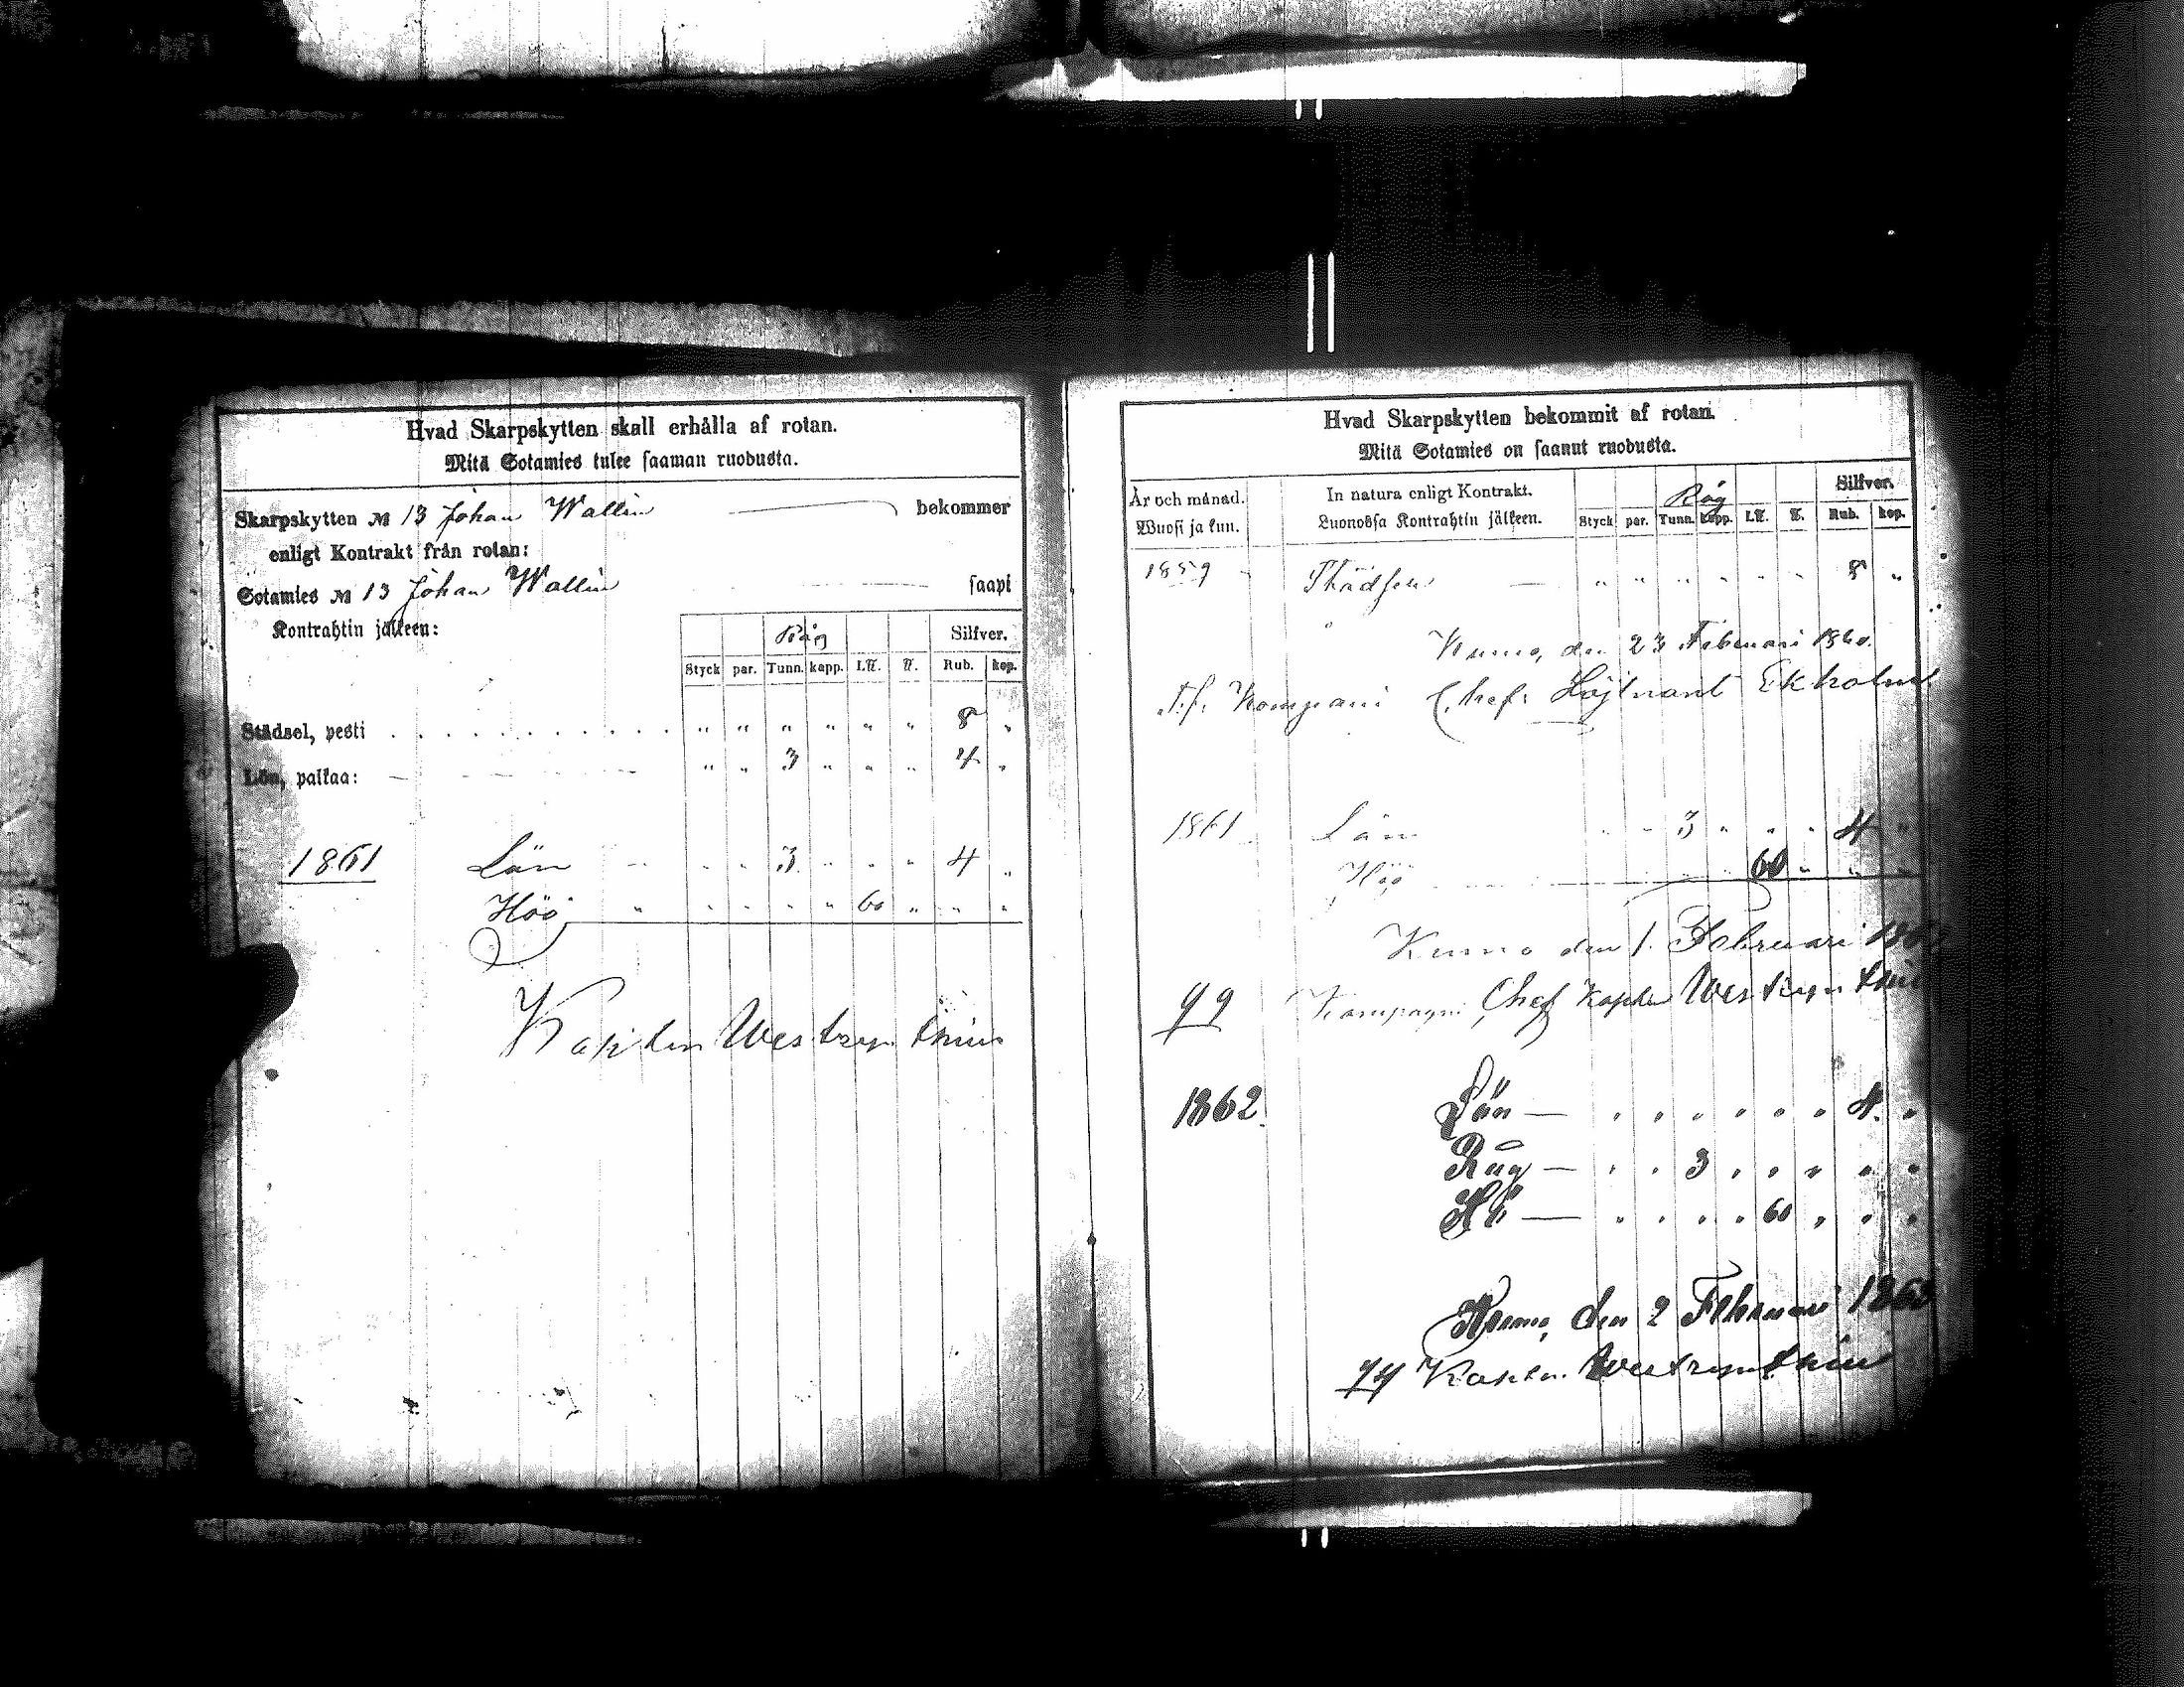 Hvad Skarpskytten skall erhålla af rotan.
Mitä Sotamies tulee saaman ruodusta.
Skarpskytten № 13 Johan Wallin bekommer
enligt Kontrakt från rotan:
Sotamies № 13 Johan Wallin saapi
Kontrahtin jälkeen:
Råg Silfver.
Styck par. Tunn. kapp. L℔. ℔. Rub. kop.
Städsel, pesti . . . . . . . . . . . " " " " " " 8 "
Lön, palkaa: " " 3 " " " 4 "
1861 Lön " " 3 " " " 4 "
Höö " " " " " 60 " " "
Kapten Westrynthius
Hvad Skarpskytten bekommit af rotan.
Mitä Sotamies on saanut ruodusta.
År och månad. In natura enligt Kontrakt. Råg Silfver.
Wuosi ja kun. Luonossa Kontrahtin jälkeen. Styck par. Tunn. kapp. L℔. ℔. Rub. kop.
1859 Städsen — " " " " " " 8 "
Kumo, den 23 Februari 1860.
T.f. Kompani Chef: Löjtnant Ekholm
1861 Lön " " 3 " " " 4 "
Höö 60 " "
Kumo den 1. Februari
Kompagni Chef Kapten Westrynthius
1862 Lön — " " " " " " 4 "
Råg — " " 3 " " " " "
Hö — " " " " 60 " " "
Kumo, den 2 Februari 1863
Kapten Westrynthius